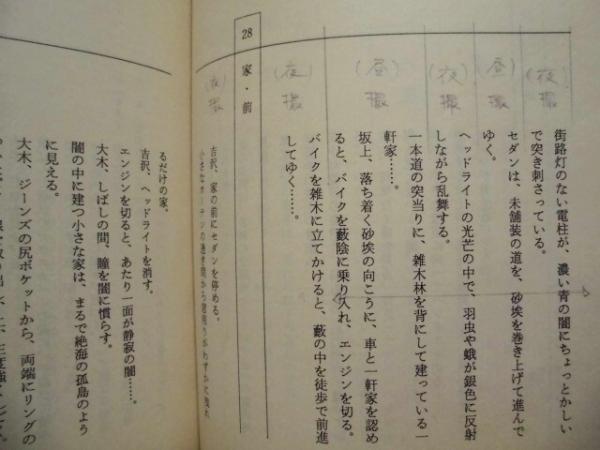 街路灯のない電柱が、濃い青の闇にちょっとかしい
で突き刺さっている。
セダンは、未舗装の道を、砂埃を巻き上げて進んで
ゆく。
ヘッドライトの光芒の中で、羽虫や蛾が銀色に反射
しながら乱舞する。
一本道の突当りに、雑木林を背にして建っている一
軒家……。
坂上、落ち着く砂埃の向こうに、車と一軒家を認め
ると、バイクを藪陰に乗り入れ、エンジンを切る。
バイクを雑木に立てかけると、藪の中を徒歩で前進
してゆく……。
(夜)撮
(昼)撮
(夜)撮
(昼)撮
(夜)撮
28 家・前
(夜)撮
吉沢、家の前にセダンを停める。
るだけの家。
吉沢、ヘッドライトを消す。
エンジンを切ると、あたり一面が静寂の闇……。
大木、しばしの間、瞳を闇に慣らす。
闇の中に建つ小さな家は、まるで絶海の孤島のよう
に見える。
大木、ジーンズの尻ポケットから、両端にリングの